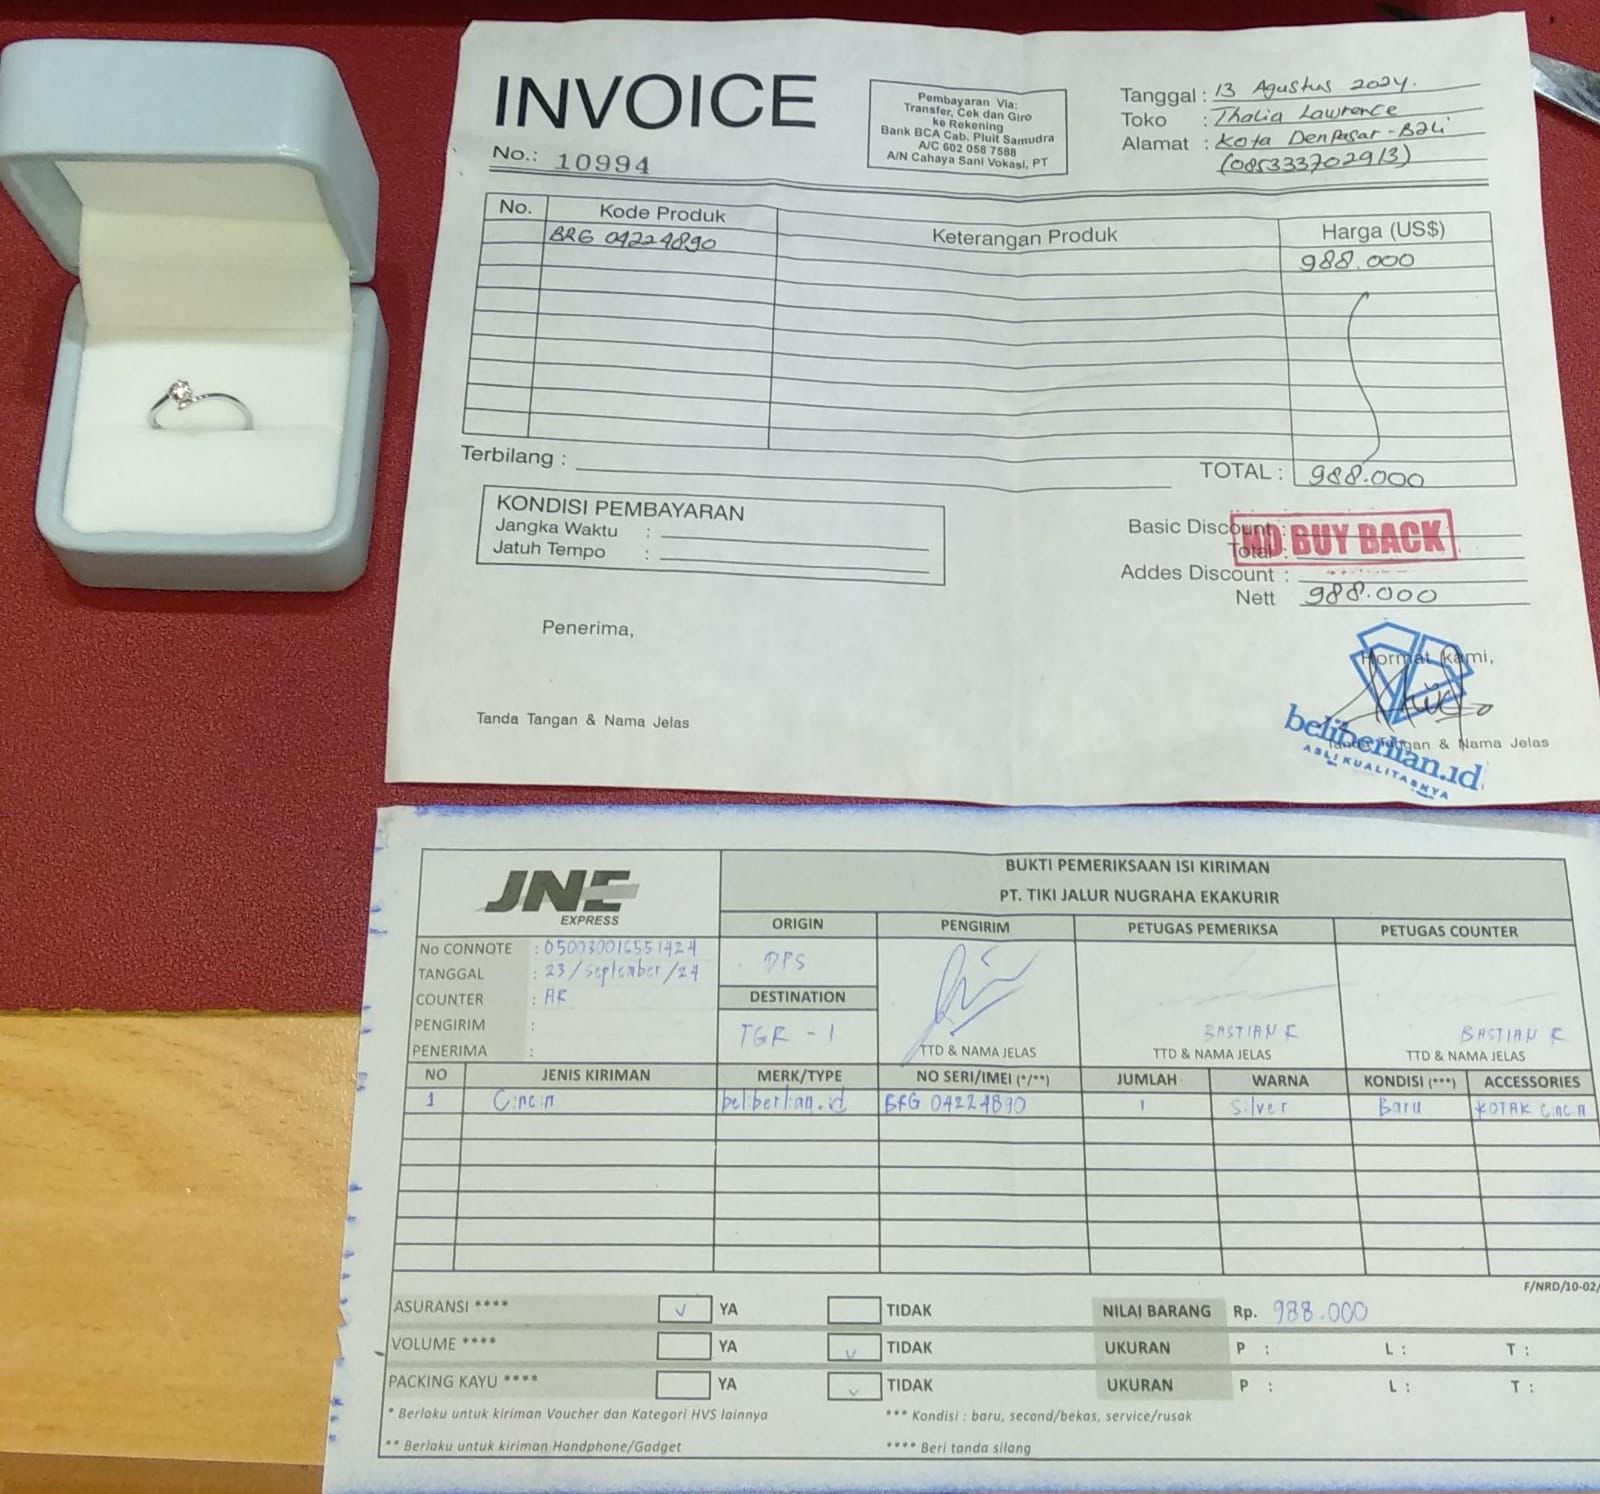 INVOICE
No.: 10994
Pembayaran Via:
Transfer, Cek dan Giro
ke Rekening
Bank BCA Cab. Pluit Samudra
A/C 602 058 7588
A/N Cahaya Sani Vokasi, PT
Tanggal : 13 Agustus 2024.
Toko : Thalia Lawrence
Alamat : Kota Denpasar - Bali
(085333702913)
No. Kode Produk Keterangan Produk Harga (US$)
BRG 04224890 988.000
Terbilang :
TOTAL : 988.000
KONDISI PEMBAYARAN
Jangka Waktu :
Jatuh Tempo :
Basic Discount :
Total :
NO BUY BACK
Addes Discount :
Nett 988.000
Penerima,
Hormat kami,
Tanda Tangan & Nama Jelas
Tanda Tangan & Nama Jelas
beliberlian.id
ASLI KUALITASNYA
JNE
EXPRESS
BUKTI PEMERIKSAAN ISI KIRIMAN
PT. TIKI JALUR NUGRAHA EKAKURIR
No CONNOTE : 050030016551424
TANGGAL : 23/September/24
COUNTER : AR
PENGIRIM :
PENERIMA :
ORIGIN
DPS
DESTINATION
TGR - 1
PENGIRIM
TTD & NAMA JELAS
PETUGAS PEMERIKSA
BASTIAN R
TTD & NAMA JELAS
PETUGAS COUNTER
BASTIAN R
TTD & NAMA JELAS
NO JENIS KIRIMAN MERK/TYPE NO SERI/IMEI (*/**) JUMLAH WARNA KONDISI (***) ACCESSORIES
1 Cincin beliberlian.id BRG 04224890 1 Silver Baru KOTAK CinCin
F/NRD/10-02/
ASURANSI **** v YA TIDAK NILAI BARANG Rp. 988.000
VOLUME **** YA v TIDAK UKURAN P : L : T :
PACKING KAYU **** YA v TIDAK UKURAN P : L : T :
* Berlaku untuk kiriman Voucher dan Kategori HVS lainnya *** Kondisi : baru, second/bekas, service/rusak
** Berlaku untuk kiriman Handphone/Gadget **** Beri tanda silang